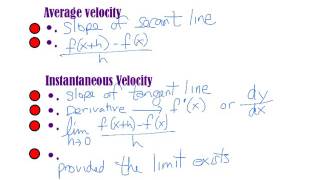 Average velocity
• slope of secant line
• f(x+h) - f(x) / h
Instantaneous Velocity
• slope of tangent line
• Derivative → f'(x) or dy/dx
• lim h→0 f(x+h) - f(x) / h
• provided the limit exists